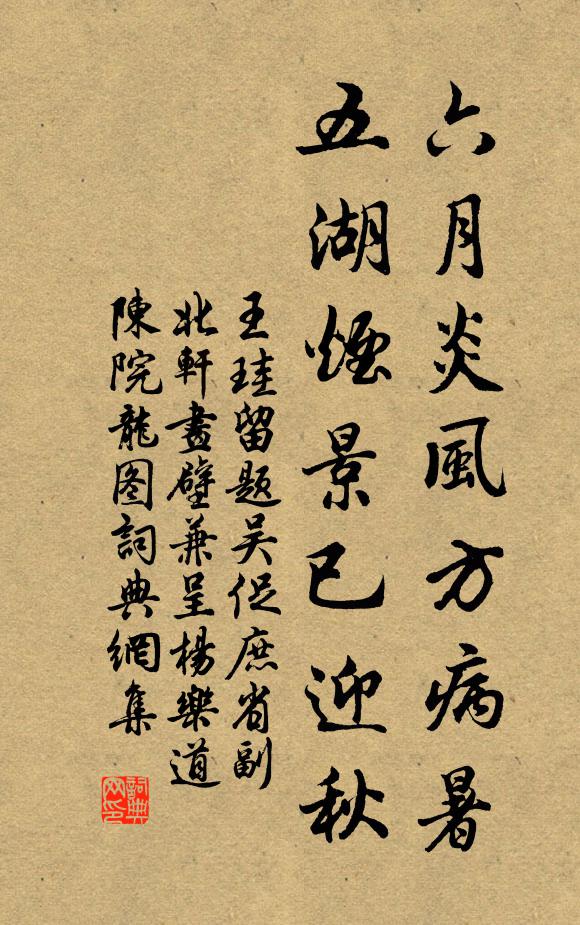 六月炎風方病暑
五湖煙景已迎秋
王珪留題吴促庶省副
北軒畫壁兼呈楊樂道
陳院龍图詞典網集
詞典网印